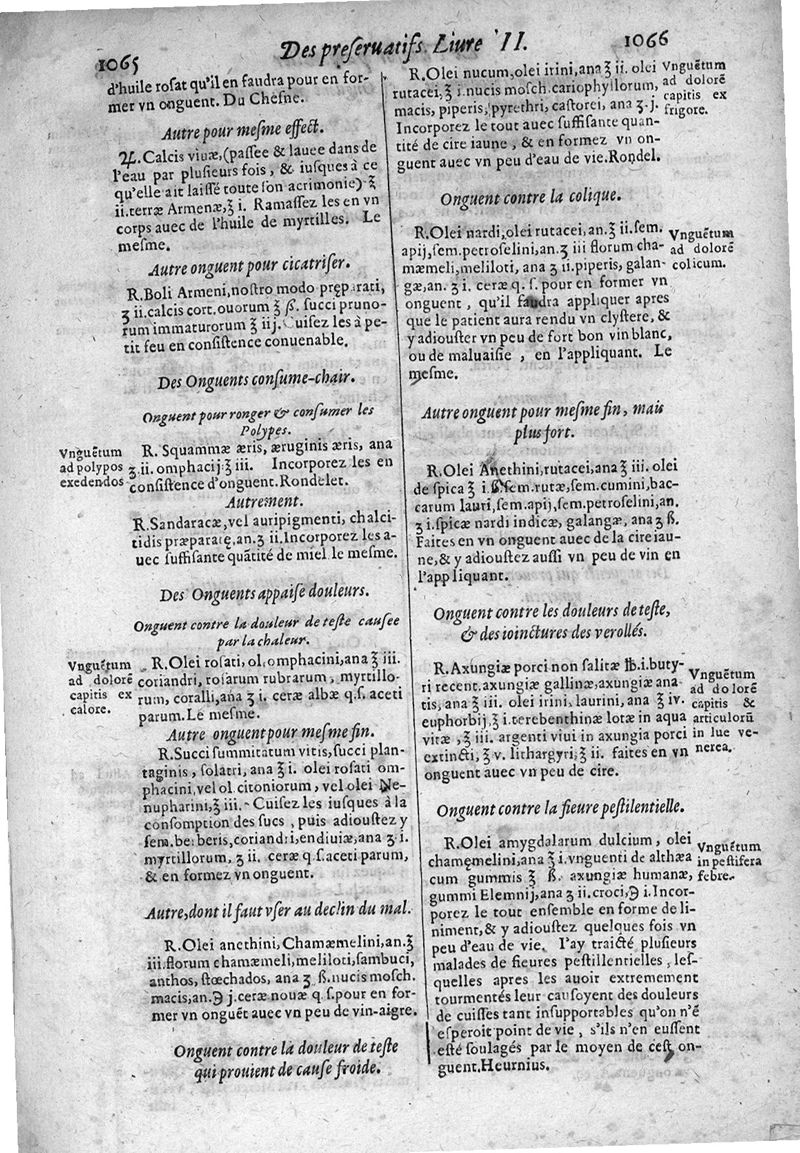 1065
Des preseruatifs. Liure II.
1066
d'huile rosat qu'il en faudra pour en for-
mer vn onguent. Du Chesne.
Autre pour mesme effect.
♃. Calcis viuæ, (passee & lauee dans de
l'eau par plusieurs fois, & iusques à ce
qu'elle ait laissé toute son acrimonie) ℥
ii. terræ Armenæ, ℥ i. Ramassez les en vn
corps auec de l'huile de myrtilles. Le
mesme.
Autre onguent pour cicatriser.
R. Boli Armeni, nostro modo pręparati,
ʒ ii. calcis cort. ouorum ℥ ß. succi pruno-
rum immaturorum ℥ iij. Cuisez les à pe-
tit feu en consistence conuenable.
Des Onguents consume-chair.
Onguent pour ronger & consumer les
Polypes.
Vnguẽtum
ad polypos
exedendos
R. Squammæ æris, æruginis æris, ana
ʒ. ii. omphacij ℥ iii. Incorporez les en
consistence d'onguent. Rondelet.
Autrement.
R. Sandaracæ, vel auripigmenti, chalci-
tidis præparatę, an. ʒ ii. Incorporez les a-
uec suffisante quãtité de miel le mesme.
Des Onguents appaise douleurs.
Onguent contre la douleur de teste causee
par la chaleur.
Vnguẽtum
ad dolorẽ
capitis ex
calore.
R. Olei rosati, ol. omphacini, ana ℥ iii.
coriandri, rosarum rubrarum, myrtillo-
rum, coralli, ana ʒ i. ceræ albæ q. s. aceti
parum. Le mesme.
Autre onguent pour mesme fin.
R. Succi summitatum vitis, succi plan-
taginis, solatri, ana ℥ i. olei rosati om-
phacini, vel ol. citoniorum, vel olei Ne-
nupharini, ℥ iii. Cuisez les iusques à la
consomption des sucs, puis adioustez y
sem. berberis, coriandri, endiuiæ, ana ʒ i.
myrtillorum, ʒ ii. ceræ q. s. aceti parum,
& en formez vn onguent.
Autre, dont il faut vser au declin du mal.
R. Olei anethini, Chamæmelini, an. ℥
iii. florum chamæmeli, meliloti, sambuci,
anthos, stœchados, ana ʒ ß. nucis mosch.
macis, an. ℈ j. ceræ nouæ q. s. pour en for-
mer vn onguẽt auec vn peu de vin-aigre.
Onguent contre la douleur de teste
qui prouient de cause froide.
R. Olei nucum, olei irini, ana ℥ ii. olei
rutacei, ℥ i. nucis mosch. cariophyllorum,
macis, piperis, pyrethri, castorei, ana ʒ. j.
Incorporez le tout auec suffisante quan-
tité de cire iaune, & en formez vn on-
guent auec vn peu d'eau de vie. Rondel.
Vnguẽtum
ad dolorẽ
capitis ex
frigore.
Onguent contre la colique.
R. Olei nardi, olei rutacei, an. ℥ ii. sem.
apij, sem. petroselini, an. ʒ iii florum cha-
mæmeli, meliloti, ana ʒ ii. piperis, galan-
gæ, an. ʒ i. ceræ q. s. pour en former vn
onguent, qu'il faudra appliquer apres
que le patient aura rendu vn clystere, &
y adiouster vn peu de fort bon vin blanc,
ou de maluaisie, en l'appliquant. Le
mesme.
Vnguẽtum
ad dolorẽ
colicum.
Autre onguent pour mesme fin, mais
plus fort.
R. Olei Anethini, rutacei, ana ℥ iii. olei
de spica ℥ i. ß. sem. rutæ, sem. cumini, bac-
carum lauri, sem. apij, sem. petroselini, an.
ʒ i. spicæ nardi indicæ, galangæ, ana ʒ ß.
Faites en vn onguent auec de la cire iau-
ne, & y adioustez aussi vn peu de vin en
l'appliquant.
Onguent contre les douleurs de teste,
& des ioinctures des verollés.
R. Axungiæ porci non salitæ ℔. i. buty-
ri recent. axungiæ gallinæ, axungiæ ana
tis, ana ℥ iii. olei irini, laurini, ana ℥ iv.
euphorbij ℥ i. terebenthinæ lotæ in aqua
vitæ, ℥ iii. argenti viui in axungia porci
extincti, ℥ v. lithargyri, ℥ ii. faites en vn
onguent auec vn peu de cire.
Vnguẽtum
ad dolorẽ
capitis &
articulorũ
in lue ve-
nerea.
Onguent contre la fieure pestilentielle.
R. Olei amygdalarum dulcium, olei
chamęmelini, ana ℥ i. vnguenti de althæa
cum gummis ℥ ß. axungiæ humanæ,
gummi Elemnij, ana ʒ ii. croci, ℈ i. Incor-
porez le tout ensemble en forme de li-
niment, & y adioustez quelques fois vn
peu d'eau de vie. I'ay traicté plusieurs
malades de fieures pestillentielles, les-
quelles apres les auoir extremement
tourmentés leur causoyent des douleurs
de cuisses tant insupportables qu'on n'ẽ
esperoit point de vie, s'ils n'en eussent
esté soulagés par le moyen de cest on-
guent. Heurnius.
Vnguẽtum
in pestifera
febre.